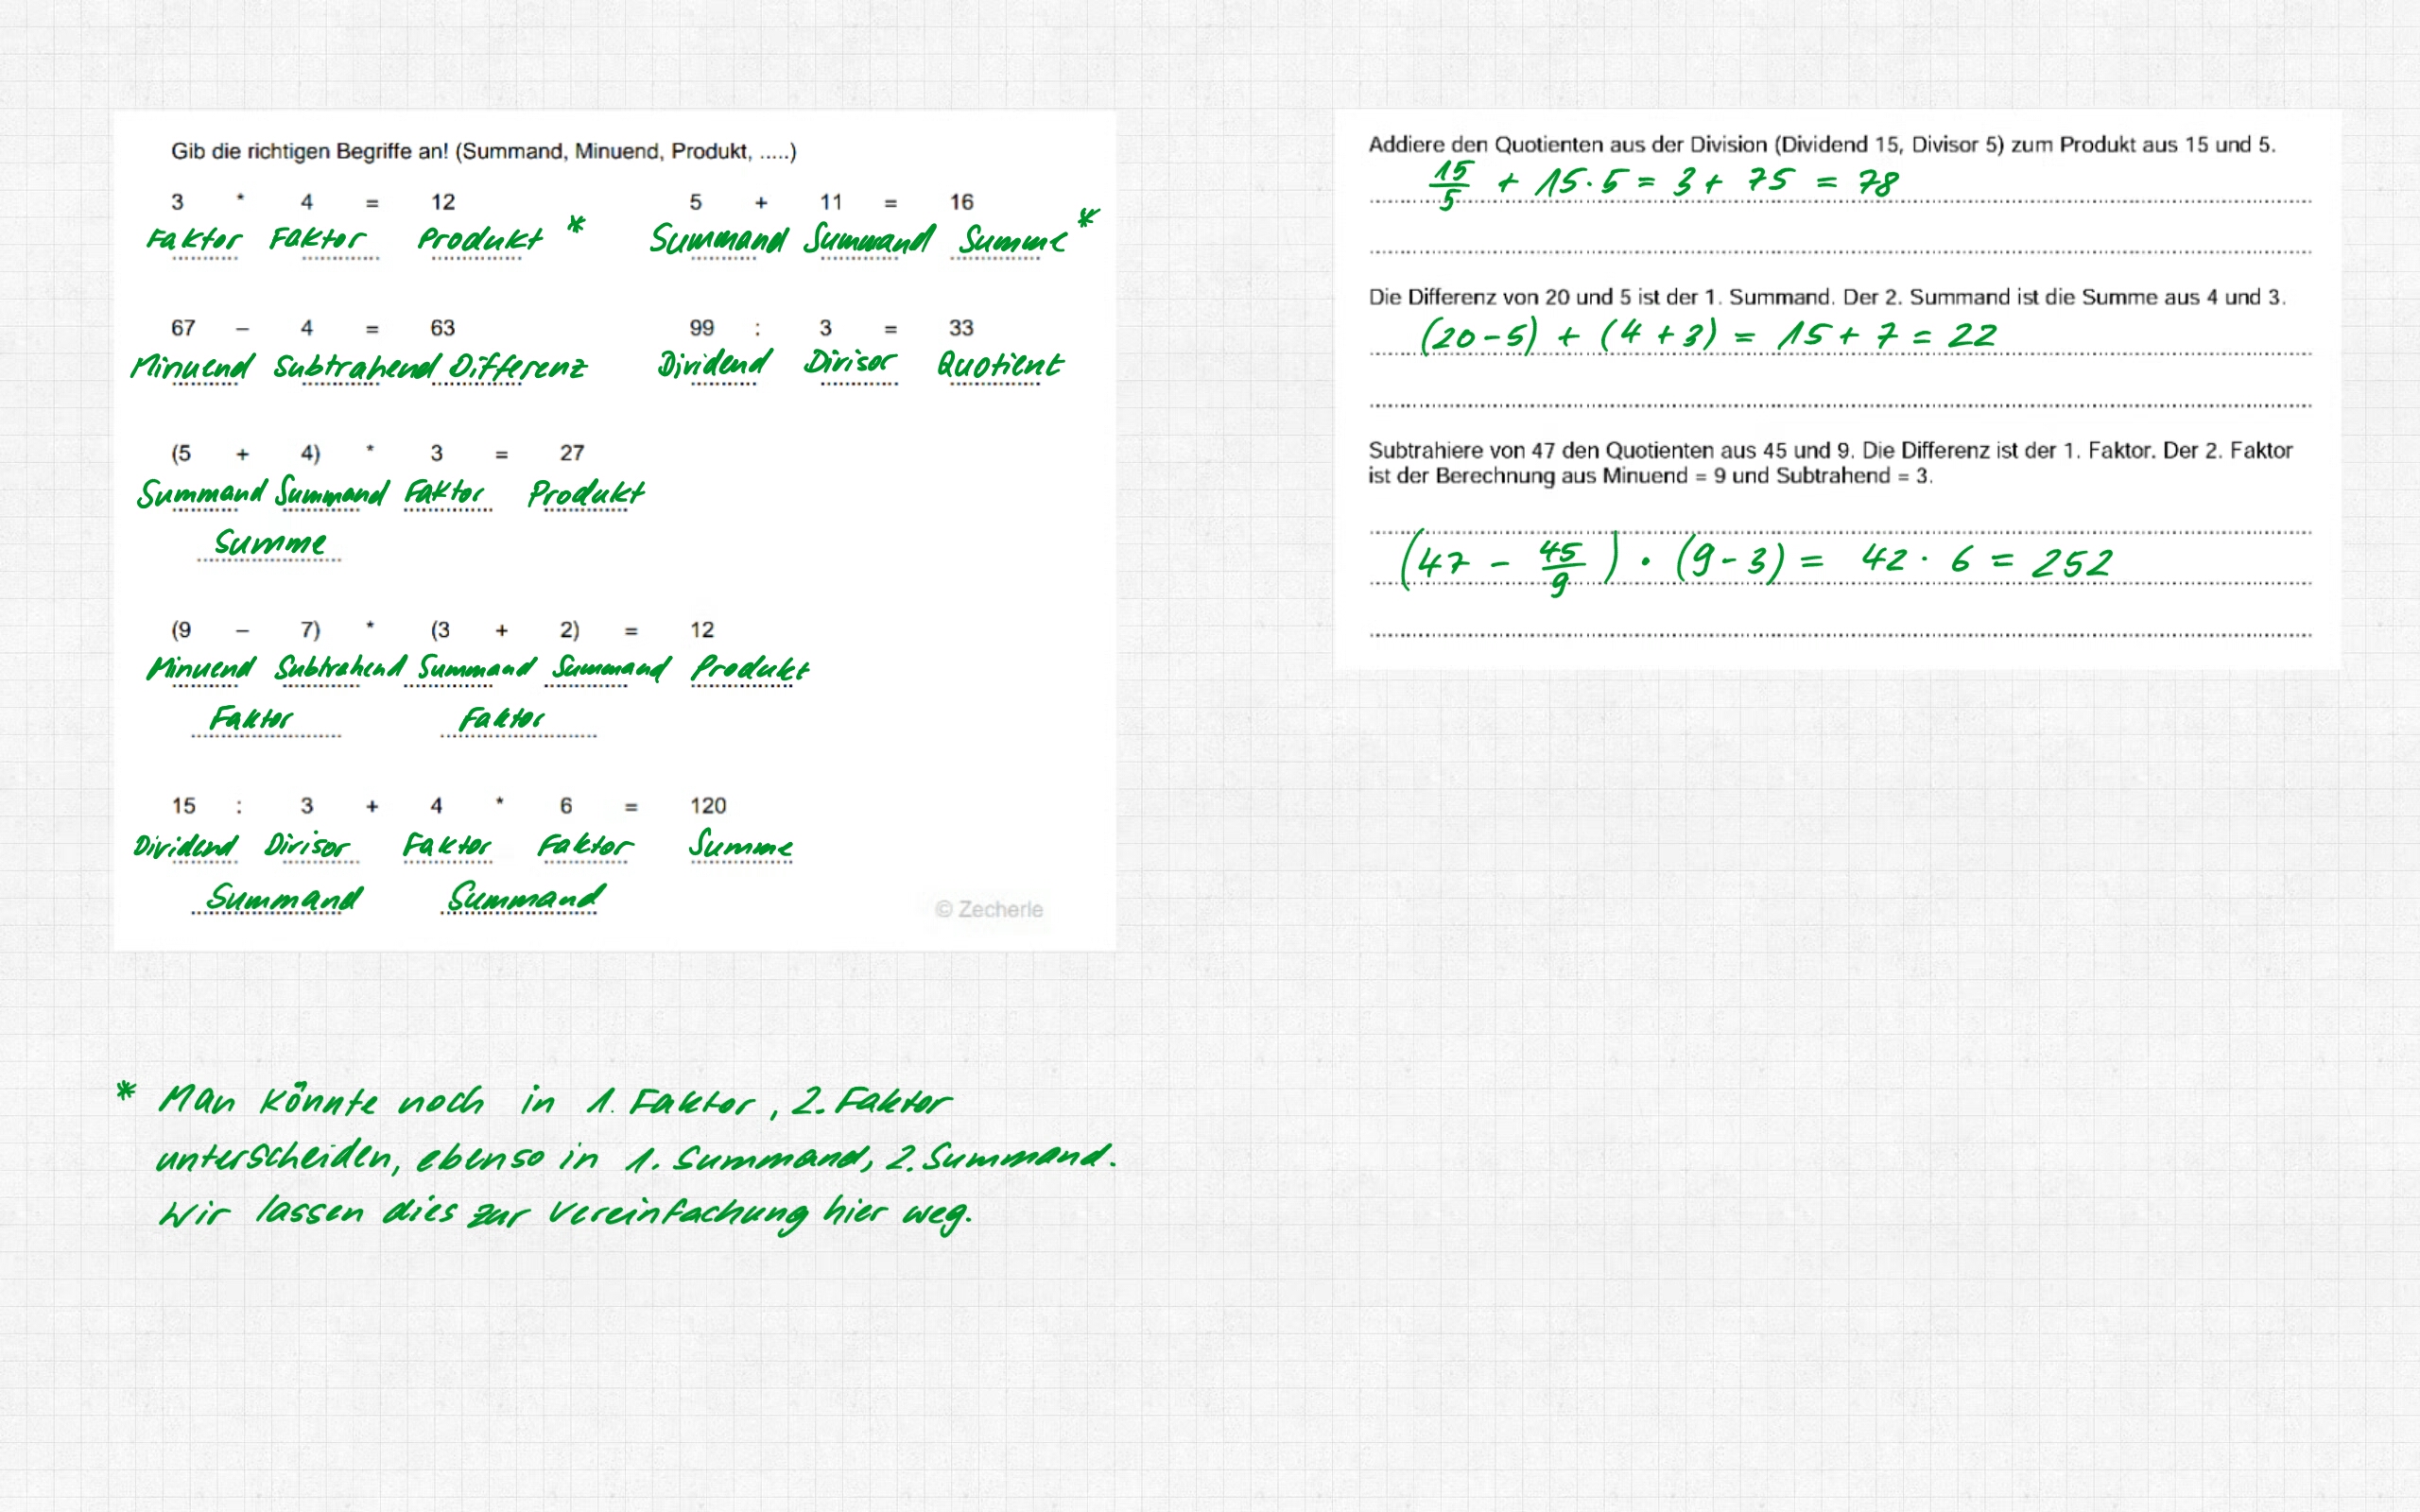 Gib die richtigen Begriffe an! (Summand, Minuend, Produkt, .....)
3 * 4 = 12
Faktor Faktor Produkt *
5 + 11 = 16
Summand Summand Summe *
67 – 4 = 63
Minuend Subtrahend Differenz
99 : 3 = 33
Dividend Divisor Quotient
(5 + 4) * 3 = 27
Summand Summand Faktor Produkt
Summe
(9 – 7) * (3 + 2) = 12
Minuend Subtrahend Summand Summand Produkt
Faktor Faktor
15 : 3 + 4 * 6 = 120
Dividend Divisor Faktor Faktor Summe
Summand Summand
© Zecherle
* Man könnte noch in 1. Faktor, 2. Faktor
unterscheiden, ebenso in 1. Summand, 2. Summand.
Wir lassen dies zur Vereinfachung hier weg.
Addiere den Quotienten aus der Division (Dividend 15, Divisor 5) zum Produkt aus 15 und 5.
15/5 + 15 · 5 = 3 + 75 = 78
Die Differenz von 20 und 5 ist der 1. Summand. Der 2. Summand ist die Summe aus 4 und 3.
(20 - 5) + (4 + 3) = 15 + 7 = 22
Subtrahiere von 47 den Quotienten aus 45 und 9. Die Differenz ist der 1. Faktor. Der 2. Faktor
ist der Berechnung aus Minuend = 9 und Subtrahend = 3.
(47 - 45/9) · (9 - 3) = 42 · 6 = 252